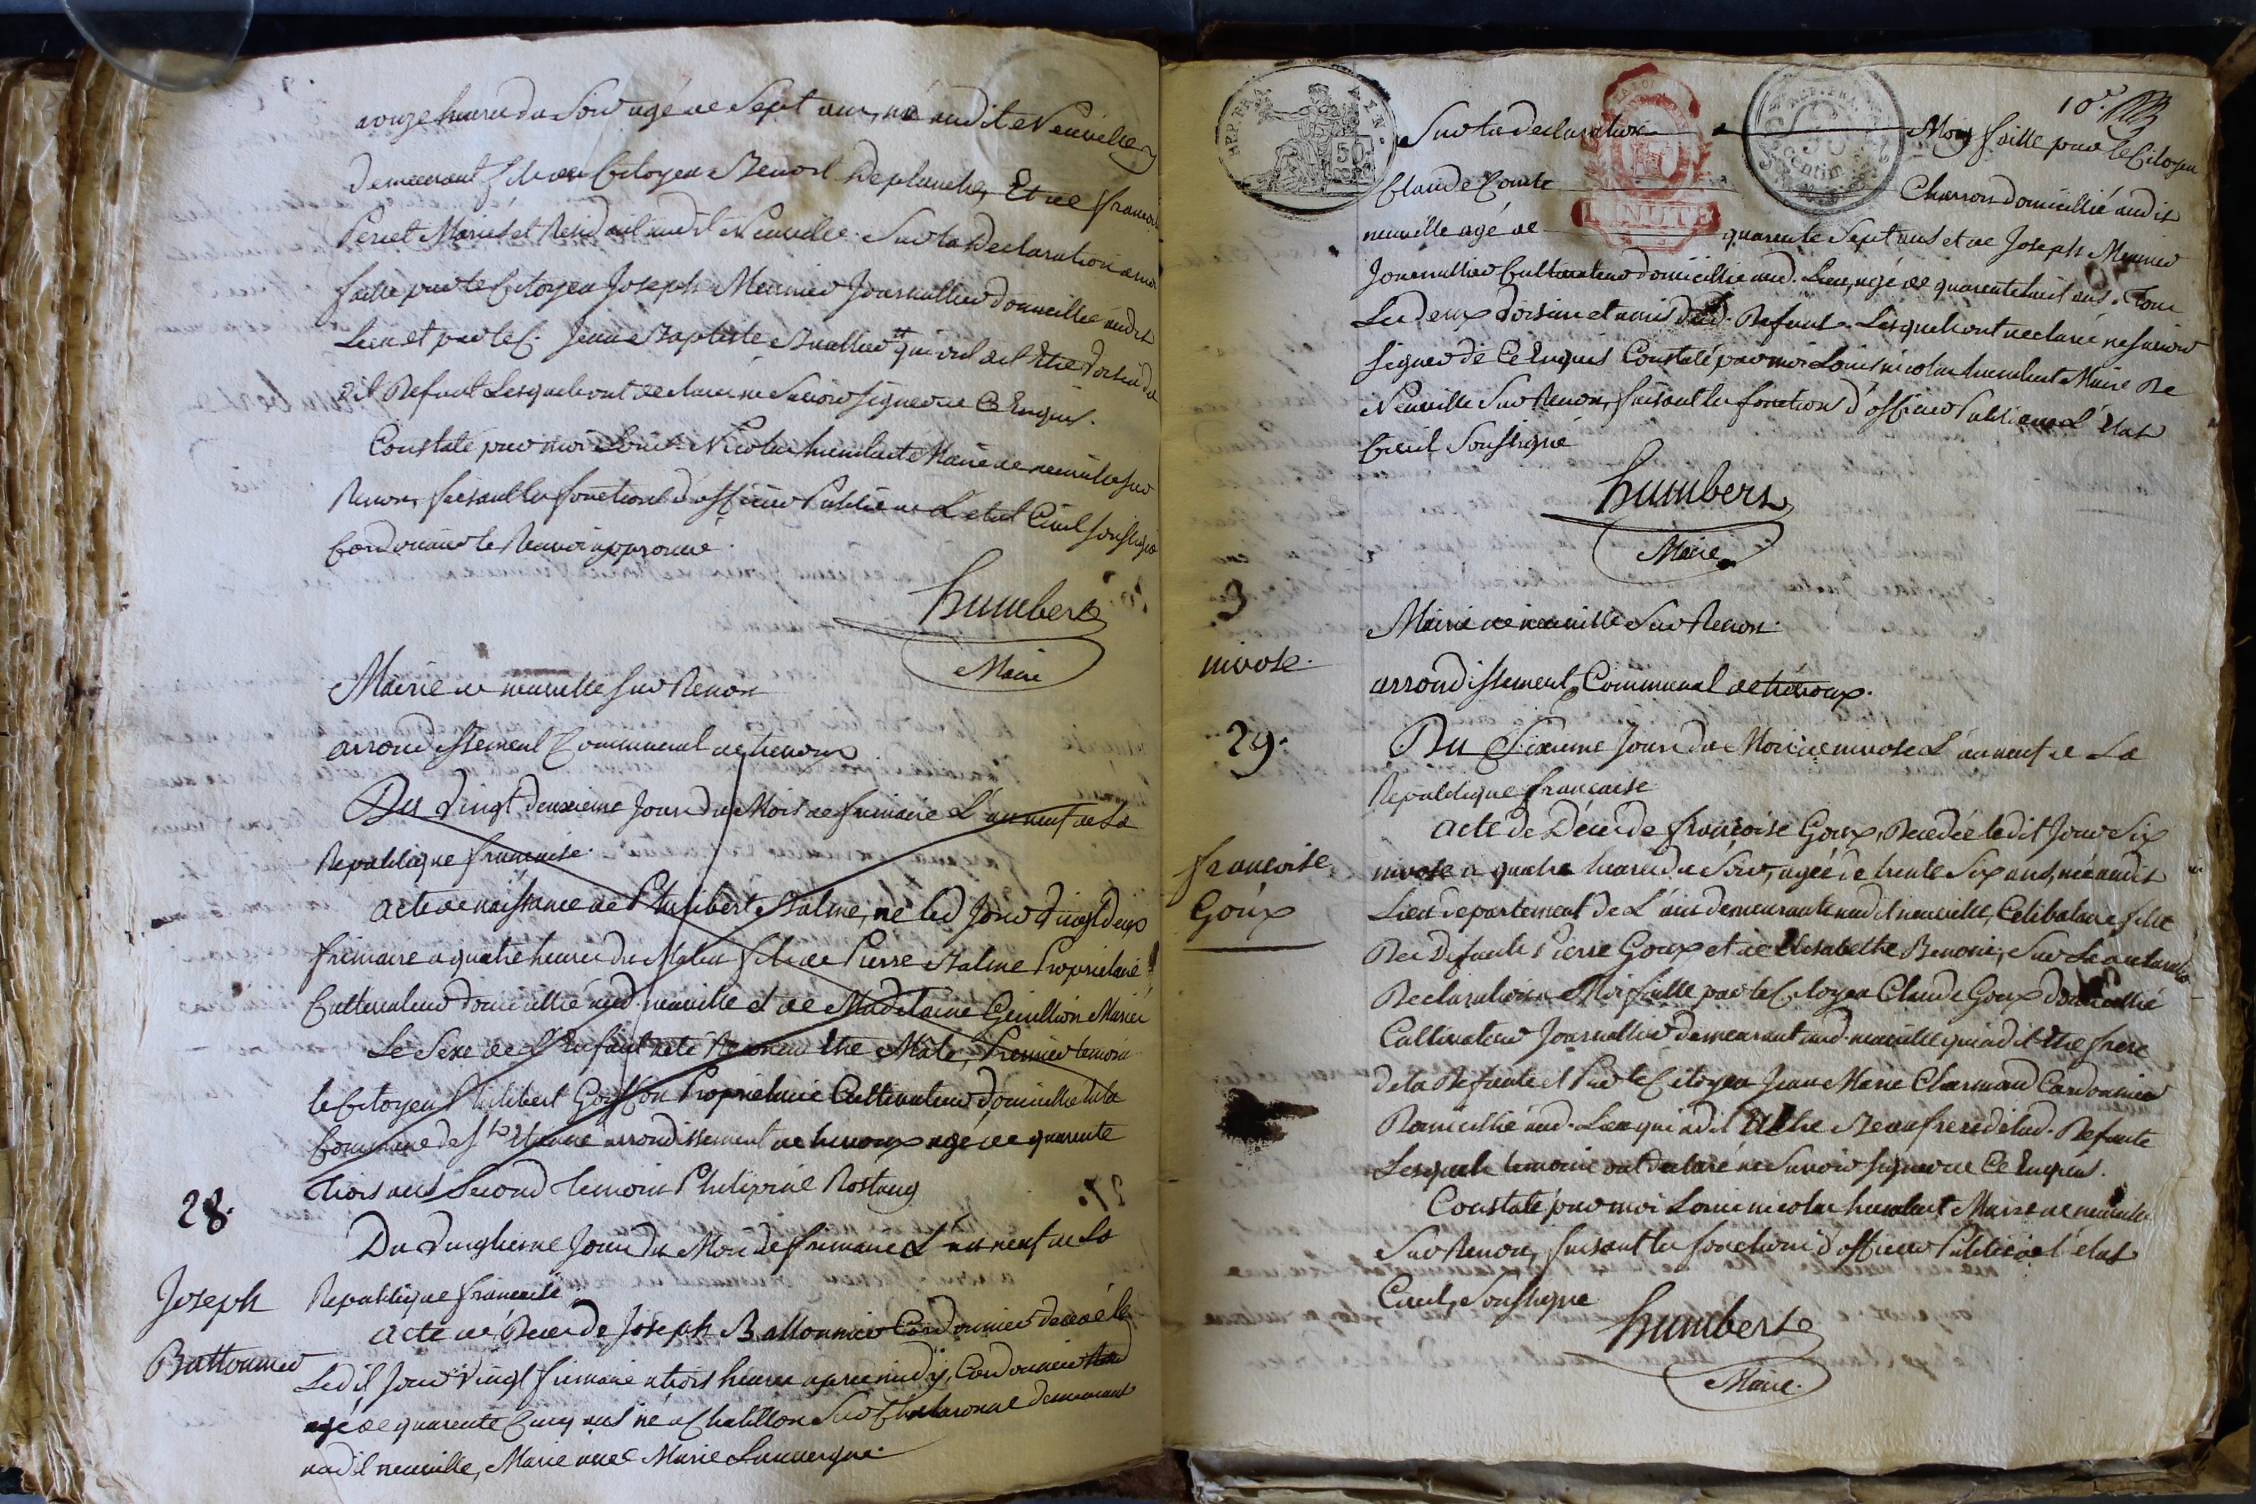 a onze heures du Soir agé de Sept ans, né audit Neuville y
demeurant fils du Citoyen Benoit Deplanche, Et de francoise
Perret Mariés et Residant audit Neuville. Sur la Declaration a moi
faitte par le Citoyen Joseph Meunier Journallier domicillie audit
Lieu et par le C. Jean Baptiste Buathier qui ont dit Etre Voisin du
dit Defunt Lesquels ont declaré ne Savoir Signer de Ce Enquis.
Constaté par moi Louis Nicolas humbert Maire de neuville Sur
Renon, faisant les fonctions d'officier Public de L'etat Civil Soussigné
Cordonnier le Renvoi approuvé.
humbert
Maire
Mairie de neuville Sur Renon
arrondissement Communal de trevoux
Du Vingt deuxieme Jour du Mois de frimaire L'an neuf de La
Republique francaise.
acte de naissance de Philibert Balme, né led Jour Vingt deux
frimaire a quatre heures du Matin fils de Pierre Balme Proprietaire
Cultivateur domicillié aud. neuville et de Madelaine Guillion Mariés
Le Sexe de L'Enfant a eté Reconnu Etre Male, Premier temoin
le Citoyen Philibert Proprietaire Cultivateur domicillie dela
Commune de St Etienne arrondissement de trevoux agé de quarente
trois ans Second temoin Philipine Rostang
28.
Du Vingtieme Jour du Mois de frimaire L'an neuf de La
Republique francaise
Joseph
Battonnier
acte de Décès de Joseph Battonnier Cordonnier decedé le
Ledit Jour Vingt frimaire a trois heures apres midy, Cordonnier
agé de quarente Cinq ans né a Chatillon Sur Chalaronne demeurant
audit neuville, Marié avec Marie Lauvergne.
10e.
Sur la declaration a Moy faitte par le Citoyen
Claude Comte Charron domicillié audit
neuville agé de quarente Sept ans et de Joseph Meunier
Journallier Cultivateur domicillié aud. Lieu, agé de quarente huit ans. Tous
Les deux Voisins et amis dud. Defunt. Lesquels ont declaré ne Savoir
Signer de Ce Enquis Constaté par moi Louis nicolas humbert Maire De
Neuville Sur Renon, faisant les fonctions d'officier Public de L'Etat
Civil Soussigné
humbert
Maire
REP. FRA.
50
MINUTE
REP. FRA.
centim.
3
nivose.
Mairie de neuville Sur Renon.
arrondissement Communal de trévoux.
29.
Du Sixieme Jour du Mois de nivose L'an neuf de La
Republique francaise
francoise
Goux
acte de Décès de francoise Goux, Decedée ledit Jour Six
nivose a quatre heures du Soir, agée de trente Six ans, née audit
Lieu departement de L'ain demeurante audit neuville, Celibataire fille
Des Defunts Pierre Goux et de Elisabethe Benoni, Sur La
Declaration a Moi faitte par le Citoyen Claude Goux domicillié
Cultivateur Journallier demeurant aud. neuville qui a dit Etre frere
de la Defunte et Par le Citoyen Jean Marie Charmand Cordonnier
Domicillié aud. Lieu qui a dit Etre Beaufrere de lad. Defunte
Lesquels temoins ont declaré ne Savoir Signer de Ce Enquis.
Constaté par moi Louis nicolas humbert Maire de neuville
Sur Renon, faisant les fonctions d'officier Public de l'état
Civil, Soussigné
humbert
Maire.